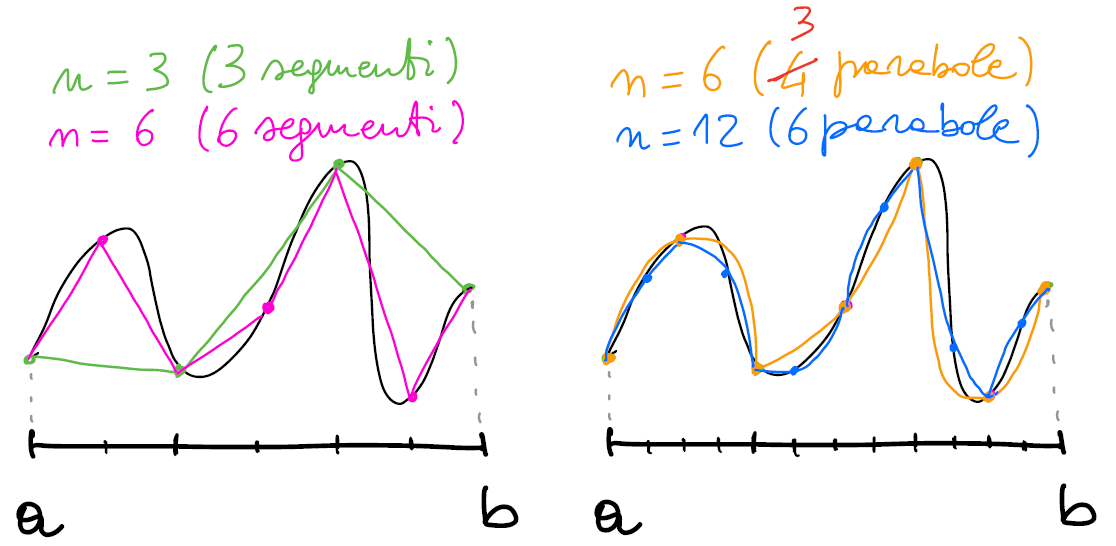 n = 3 (3 segmenti)
n = 6 (6 segmenti)
a
b
3
n = 6 (4 parabole)
n = 12 (6 parabole)
a
b